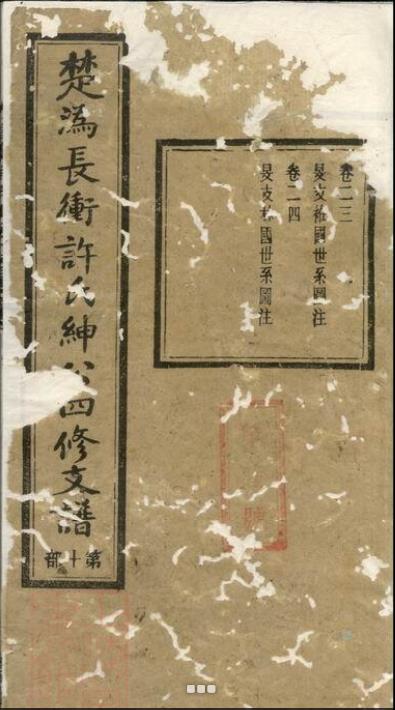 卷二三
旻支國世系圖注
卷二四
旻支國世系圖注
楚溈長衝許氏紳公四修支譜
第十部